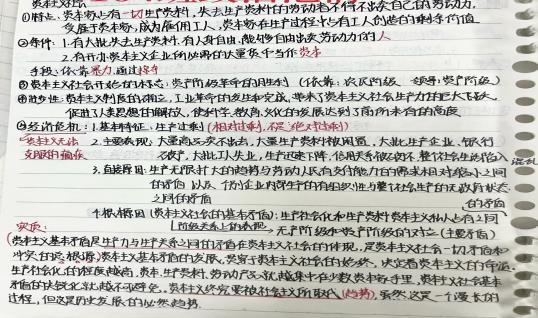 资本主义社会
①特点：资本家占有一切生产资料，失去生产资料的劳动者不得不出卖自己的劳动力，
受雇于资本家，成为雇佣工人，资本家在生产过程中占有工人创造的剩余价值
②条件：1.有大批失去生产资料、有人身自由、能够自由出卖劳动力的人
2.有开办资本主义企业所必需的大量货币当作资本
手段：依靠暴力，通过掠夺
③资本主义社会开始的标志：资产阶级革命的胜利（依靠：农民阶级 领导：资产阶级）
④进步性：资本主义制度的确立，工业革命的发生和完成，带来了资本主义社会生产力的巨大飞跃，
促进了人类思想的解放，使科学、教育、文化的发展达到了前所未有的高度
⑤经济危机：1.基本特征：生产过剩（相对过剩，不是绝对过剩）
资本主义无法
克服的痼疾
2.主要表现：大量商品卖不出去，大量生产资料被闲置，大批生产企业、银行
破产，大批工人失业，生产迅速下降，信用关系被破坏，整个社会生活陷入
混乱
3.直接原因：生产无限扩大的趋势与劳动人民有支付能力的需求相对缩小之间
的矛盾 以及 个别企业内部生产的有组织性与整个社会生产的无政府状态
之间的矛盾
的矛盾
4.根本原因（资本主义社会的基本矛盾）：生产社会化和生产资料资本主义私人占有之间
实质：
阶级关系上的表现
无产阶级和资产阶级的对立（主要矛盾）
（资本主义基本矛盾是生产力与生产关系之间的矛盾在资本主义社会的体现，是资本主义社会一切矛盾和
冲突的总根源）资本主义基本矛盾的发展，贯穿于资本主义社会的始终，决定着资本主义的命运。
生产社会化的程度越高，资本、生产资料、劳动产品就越集中在少数资本家手里，资本主义社会基本
矛盾的尖锐化就越不可避免。资本主义终究要被社会主义所取代（趋势），虽然这是一个漫长的
过程，但这是历史发展的必然趋势。